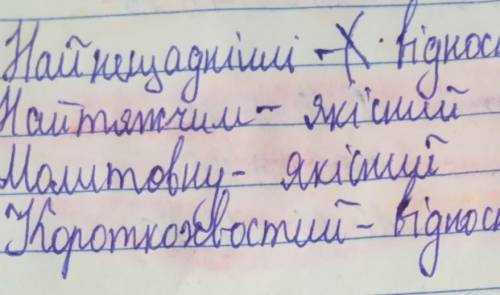 Найнещадніші - віднос
Найтяжчим - якісний
Молитовну - якісний
Короткохвостий - віднос